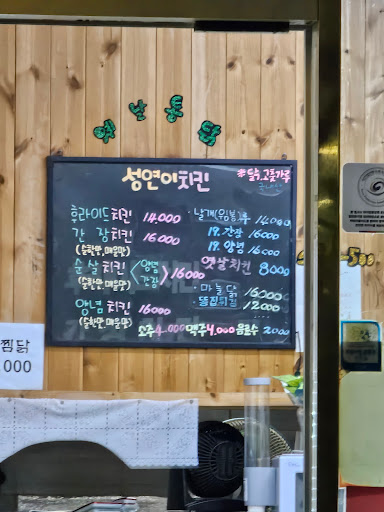 옛날통닭
성연이치킨
#닭,고춧가루
국내산
후라이드치킨 14.000
간장치킨 16.000
(순한맛,매운맛)
순살치킨 <양념 간장> 16000
(순한맛,매운맛)
양념치킨 16000
(순한맛 매운맛)
소주 4.000 맥주 4,000 음료수 2000
날개(윙봉)후 14.000
19.간장 16000
19.양념 16000
옛날치킨 8000
마늘닭 16000
똥집튀김 12000
찜닭
000